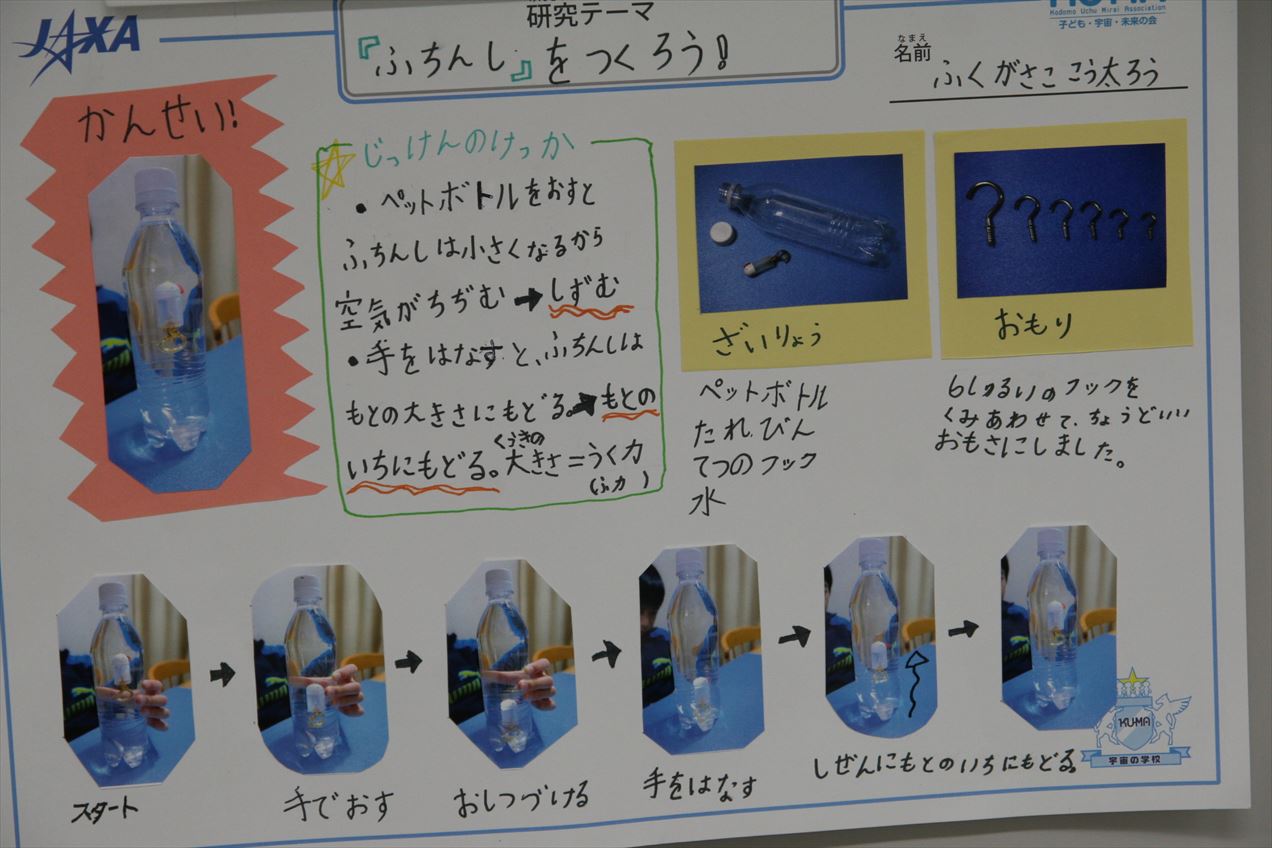 JAXA
研究テーマ
『ふちんし』をつくろう!
Kodomo Uchu Mirai Association
子ども・宇宙・未来の会
なまえ
名前
ふくがさここう太ろう
かんせい!
じっけんのけっか
• ペットボトルをおすと
ふちんしは小さくなるから
空気がちぢむ→しずむ
• 手をはなすと、ふちんしは
もとの大きさにもどる。→もとの
いちにもどる。
くうきの
大きさ=うく力
(ふ力)
ざいりょう
ペットボトル
たれびん
てつのフック
水
おもり
6しゅるいのフックを
くみあわせて、ちょうどいい
おもさにしました。
スタート
→
手でおす
→
おしつづける
→
手をはなす
→
→
しぜんにもとのいちにもどる。
KU-MA
宇宙の学校